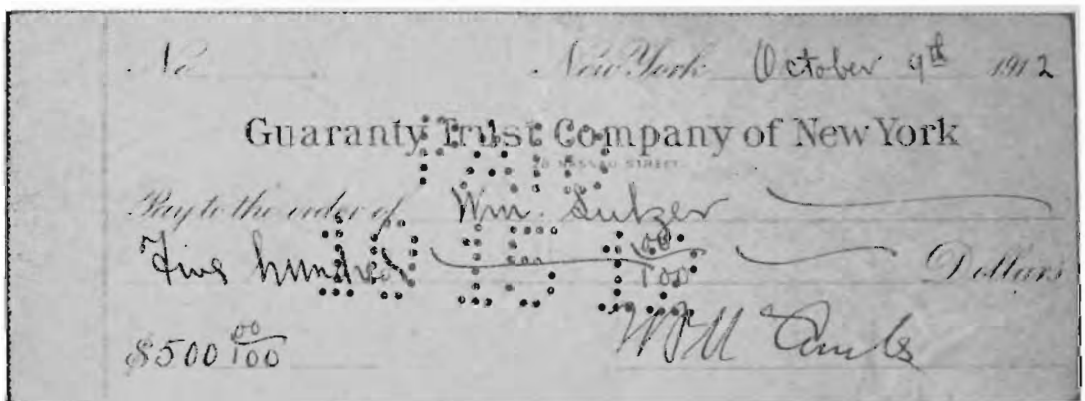 No New York October 9th 1912
Guaranty Trust Company of New York
NASSAU STREET
Pay to the order of Wm. Sulzer
Five hundred 00/100 Dollars
PAID
$500 00/100